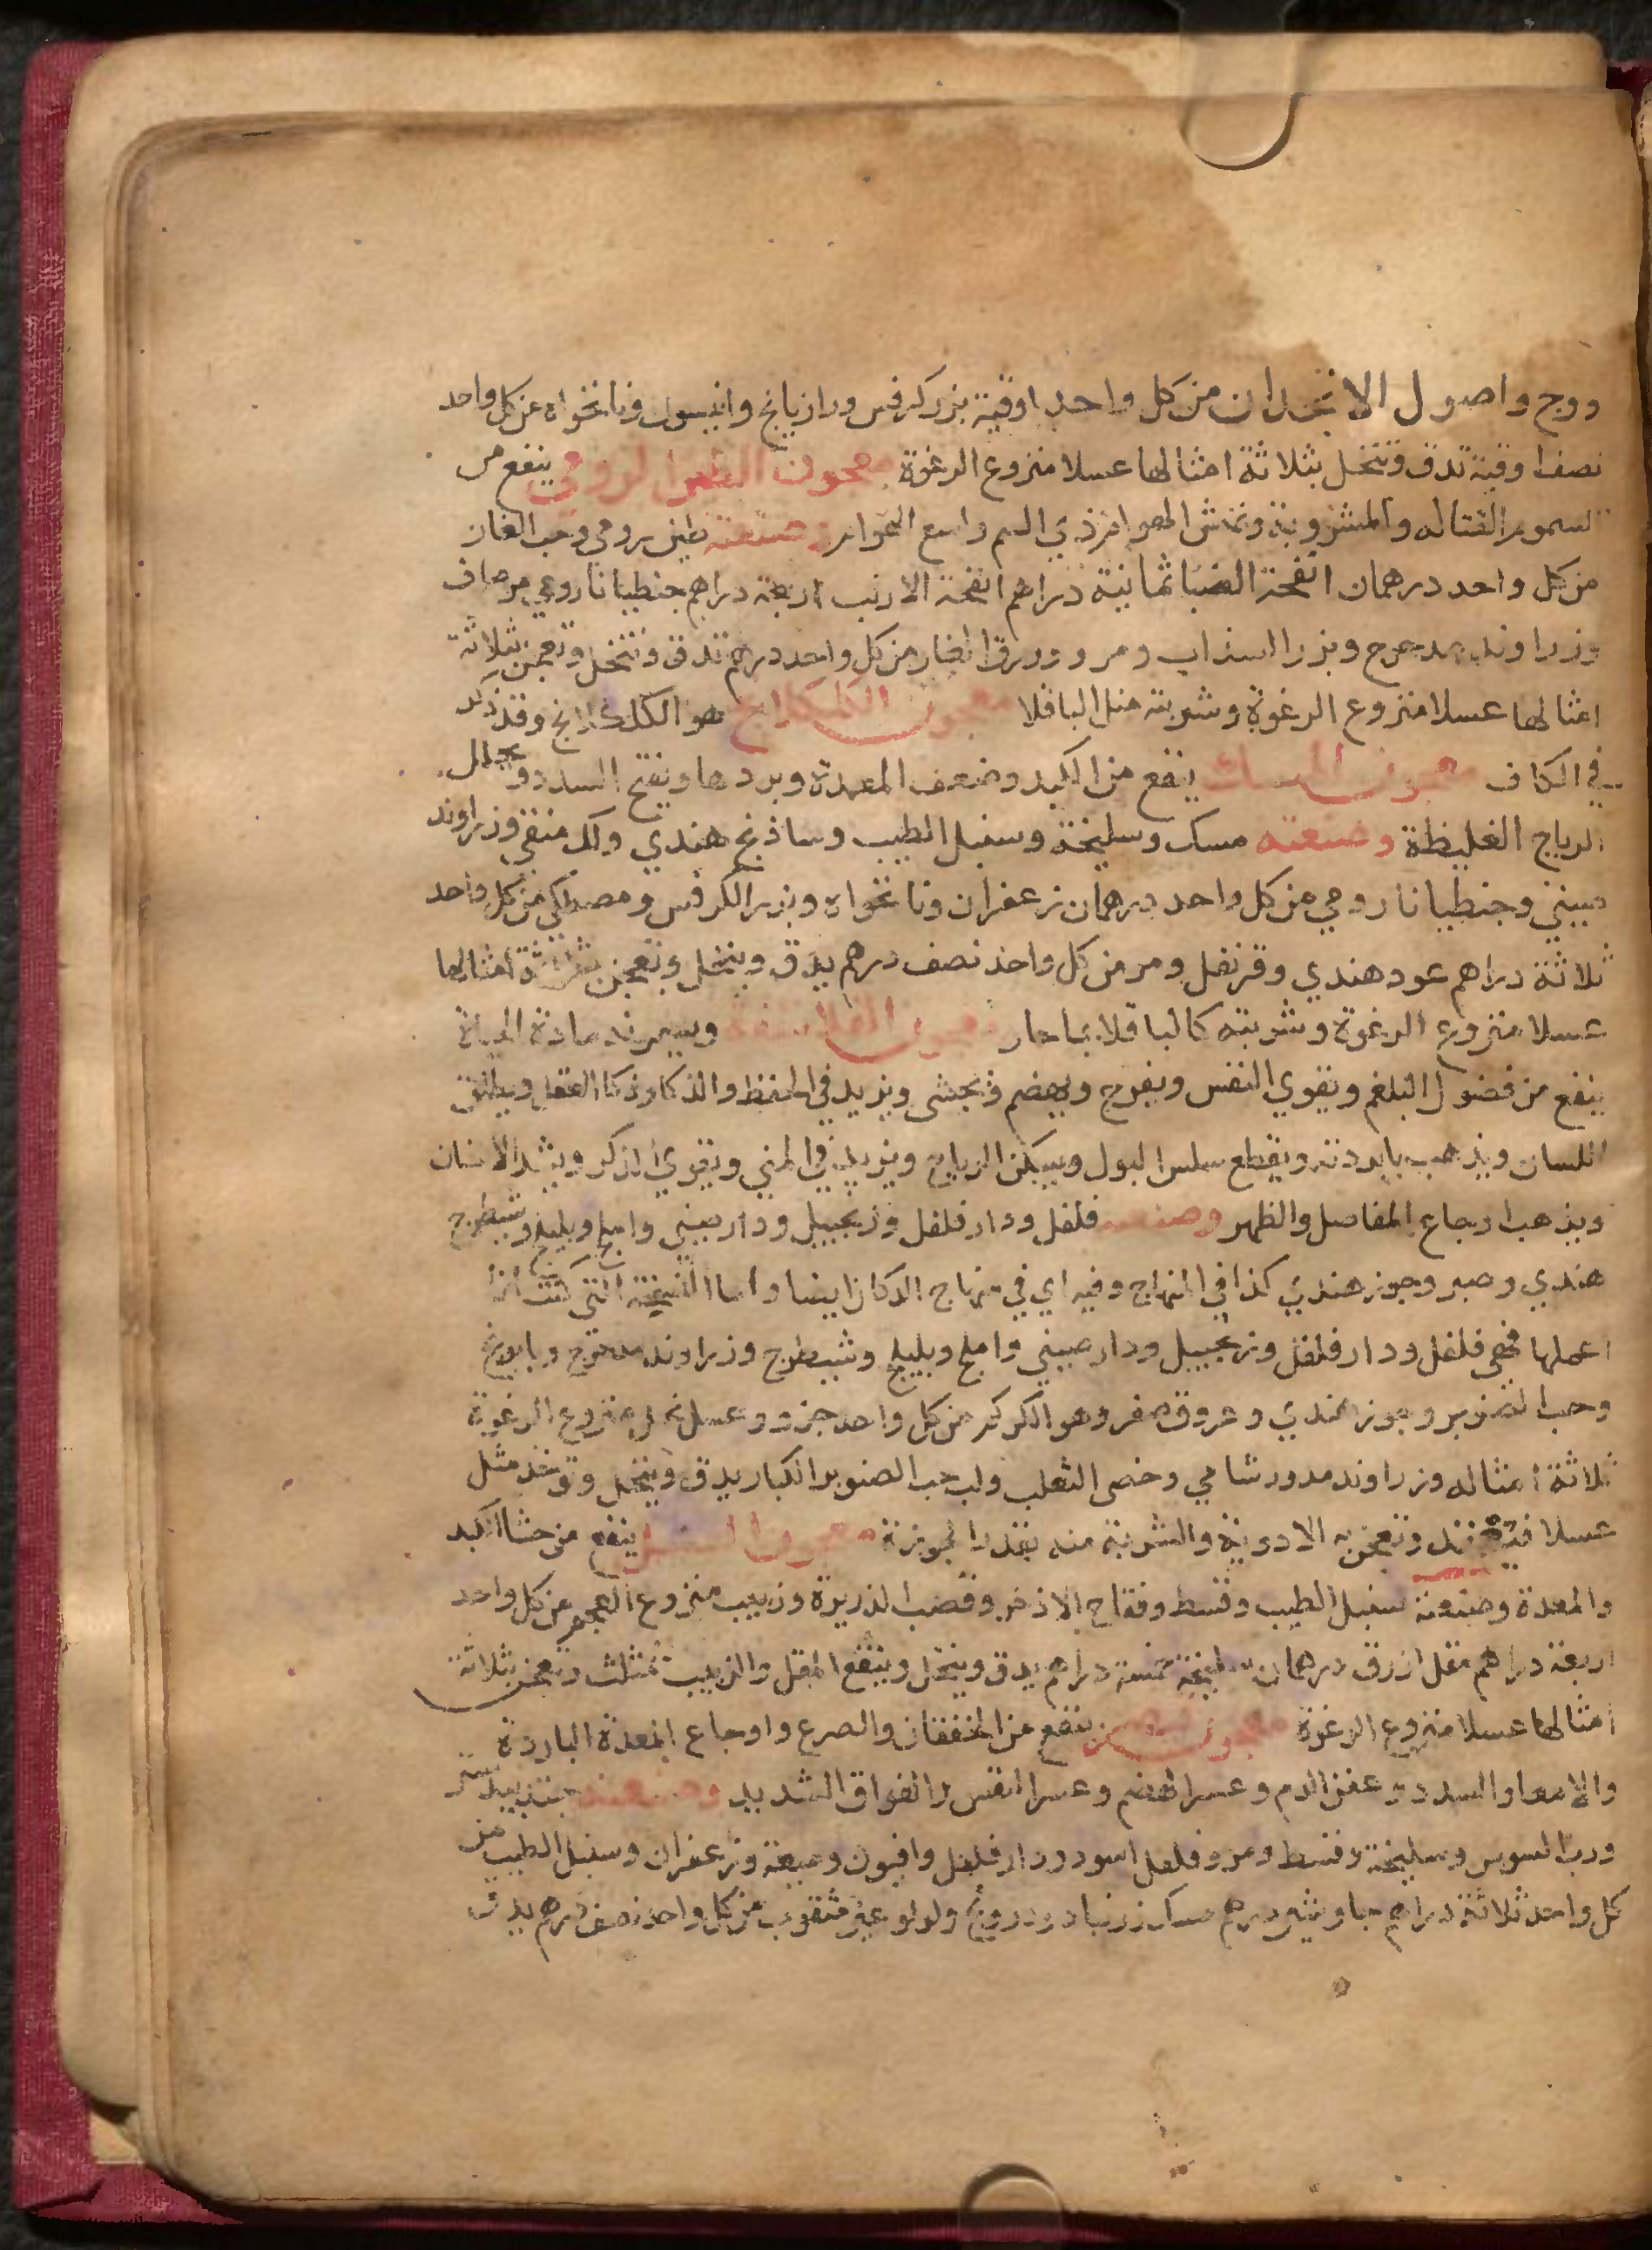 ووج واصول الانجدان من كل واحد اوقية بزر كرفس ورازيانج وانيسون ونانخواه من كل واحد
نصف اوقية تدق وتنخل بثلاثة امثالها عسلا منزوع الرغوة معجون الطين الرومي ينفع من
السموم القتاله والمشروبة ونهش الهوام ذي السم واسع الهوام وصنعته طين رومي وحب الغار
من كل واحد درهمان انفحة الضبا ثمانية دراهم انفحة الارنب اربعة دراهم جنطيانا رومي مر صاف
وزراوند مدحرج وبزر السذاب ومر وورق الغار من كل واحد درهم تدق وتنخل وتعجن بثلاثة
امثالها عسلا منزوع الرغوة وشربته مثل الباقلا معجون الكلكلانج هو الكلكلانج وقد ذكر
في الكاف معجون المسك ينفع من الكبد وضعف المعدة وبردها ويفتح السدد ويحلل
الرياح الغليظة وصنعته مسك وسليخة وسنبل الطيب وساذج هندي ولك منقى وزراوند
صيني وجنطيانا رومي من كل واحد درهمان زعفران ونانخواه وبزر الكرفس ومصطكى من كل واحد
ثلاثة دراهم عود هندي وقرنفل ومر من كل واحد نصف درهم يدق وينخل وتعجن بثلاثة امثالها
عسلا منزوع الرغوة وشربته كالباقلا بما حار معجون الفلاسفة ويسمونه مادة الحياة
ينفع من فضول البلغم ويقوي النفس ويفرح ويهضم ويجشي ويزيد في الحفظ والذكا وذكا العقل ويطلق
اللسان ويذهب بالبردته ويقطع سلس البول ويسكن الرياح ويزيد في المني ويقوي الذكر ويشد الاسنان
ويذهب اوجاع المفاصل والظهر وصنعته فلفل ودار فلفل وزنجبيل ودارصيني واملج وبليلج وشيطرج
هندي وصبر وجوز هندي كذا في المنهاج وفيه اي في منهاج الدكان ايضا واما النسخة التي كنت انا
اعملها فهي فلفل ودار فلفل وزنجبيل ودارصيني واملج وبليلج وشيطرج وزراوند مدحرج وبابونج
وحب الصنوبر وجوز هندي وعروق صفر وهو الكركم من كل واحد جزو وعسل نحل منزوع الرغوة
ثلاثة امثاله وزراوند مدور شامي وخصى الثعلب ولب حب الصنوبر الكبار يدق وينخل وتوخذ مثل
عسلا فيعقد وتعجن به الادوية والشربة منه بقدر الجوزة معجون السنبل ينفع من حشا الكبد
والمعدة وصنعته سنبل الطيب وقسط وفقاح الاذخر وقصب الذريرة وزبيب منزوع العجم من كل واحد
اربعة دراهم مقل ازرق درهمان سليخة خمسة دراهم يدق وينخل وينقع المقل والزبيب بمثلث وتعجن بثلاثة
امثالها عسلا منزوع الرغوة معجون ينفع من الخفقان والصرع واوجاع المعدة الباردة
والامعا والسدد وعفن الدم وعسر الهضم وعسر النفس والفواق الشديد وصنعته جندبيدستر
ورب السوس وسليخة وقسط ومر وفلفل اسود ودار فلفل وافيون وميعة وزعفران وسنبل الطيب من
كل واحد ثلاثة دراهم جاوشير درهم مسك زرنباد ودرونج ولولو غير مثقوب من كل واحد نصف درهم يدق